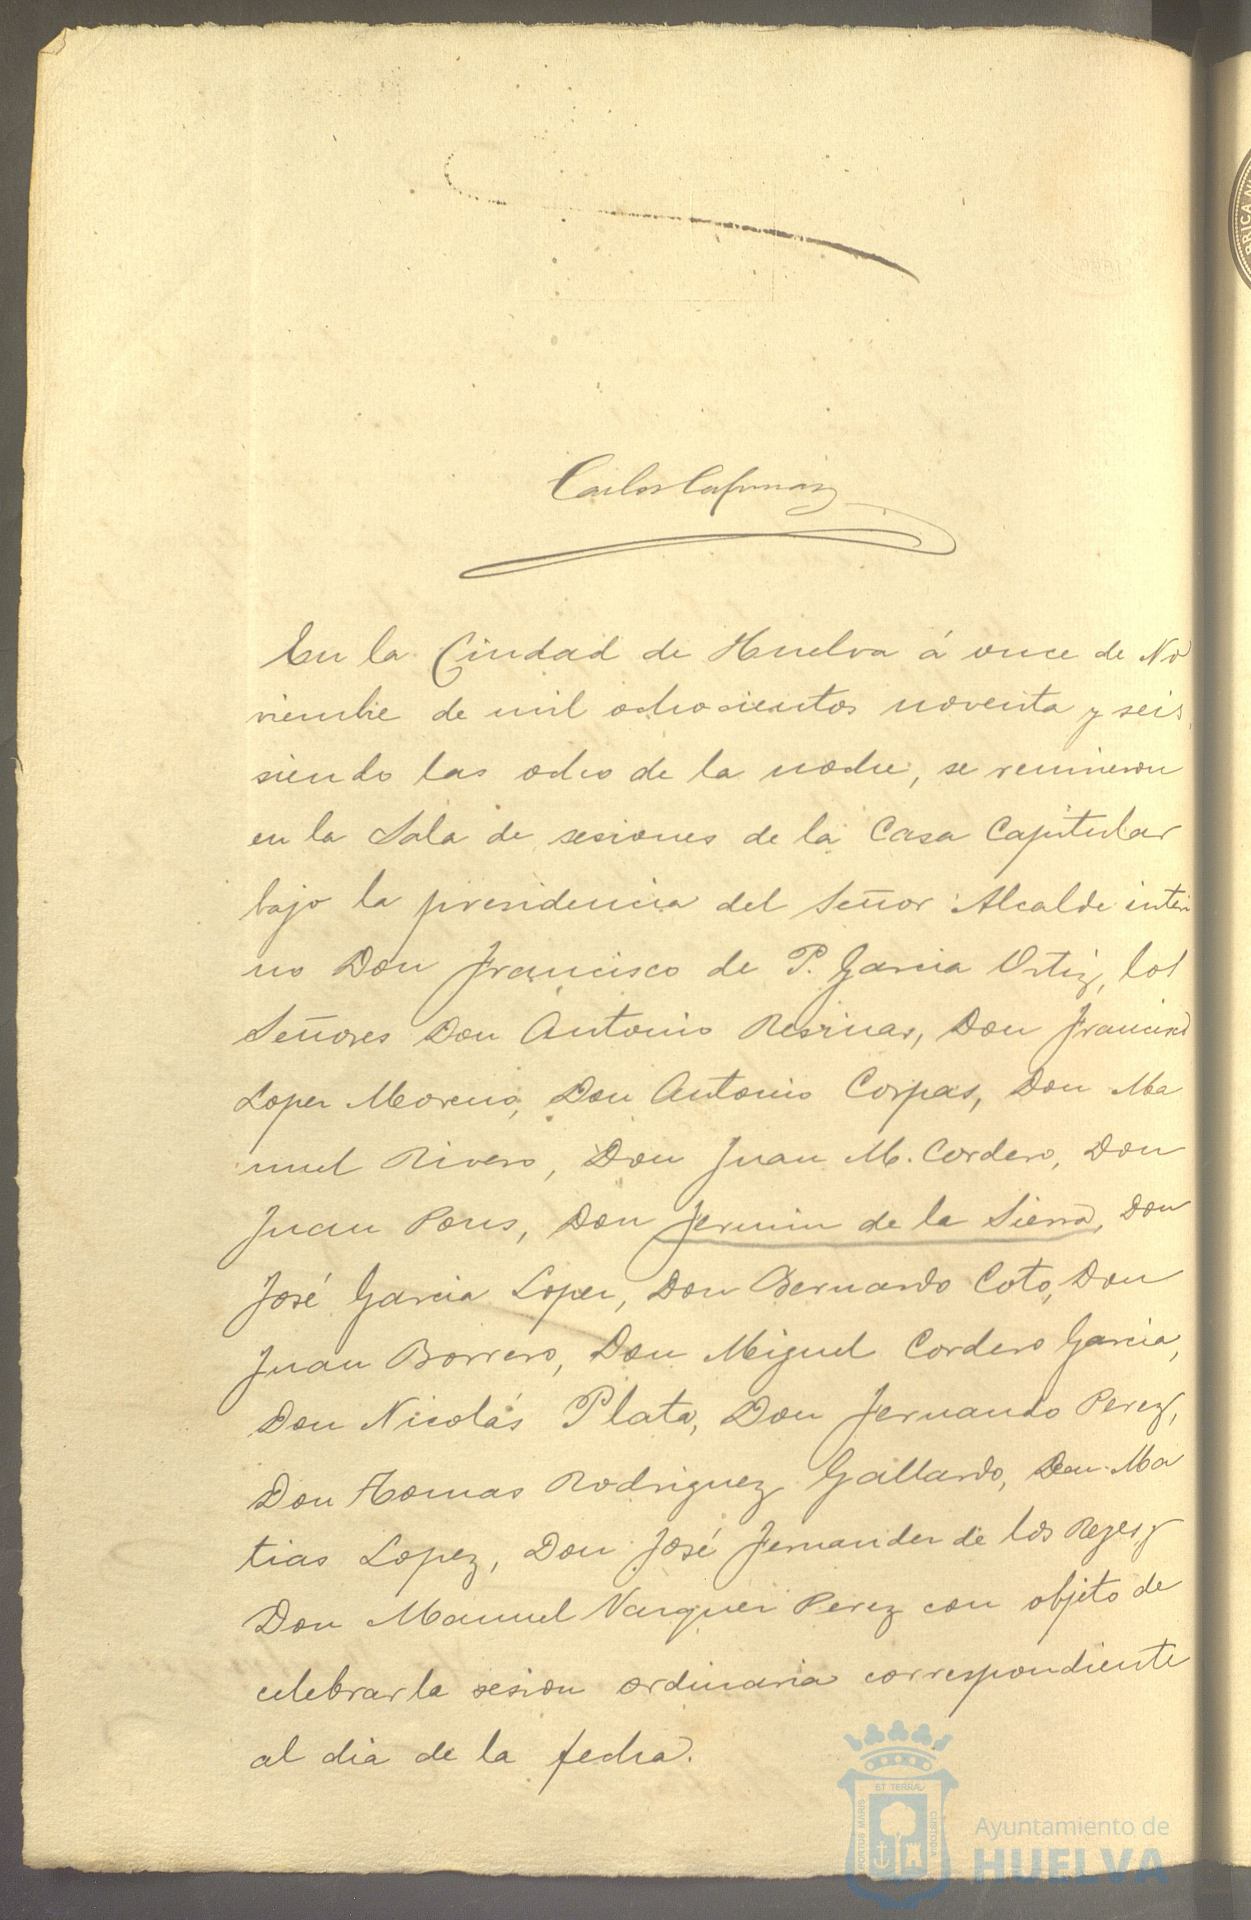 Carlos
En la Ciudad de Huelva á once de No
viembre de mil ochocientos noventa y seis,
siendo las ocho de la noche, se reunieron
en la Sala de sesiones de la Casa Capitular
bajo la presidencia del Señor Alcalde interi
no Don Francisco de P. Garcia Ortiz, los
Señores Don Antonio Resinas, Don Francisco
Lopez Moreno, Don Antonio Corpas, Don Ma
nuel Rivero, Don Juan M. Cordero, Don
Juan Pons, Don Fermin de la Sierra, Don
José Garcia Lopez, Don Bernardo Coto, Don
Juan Borrero, Don Miguel Cordero Garcia,
Don Nicolás Plata, Don Fernando Perez,
Don Tomas Rodriguez Gallardo, Don Ma
tias Lopez, Don José Fernandez de los Reyes y
Don Manuel Vazquez Perez con objeto de
celebrar la sesion ordinaria correspondiente
al dia de la fecha.
ET TERRÆ
PORTUS MARIS
CUSTODIA
Ayuntamiento de
HUELVA